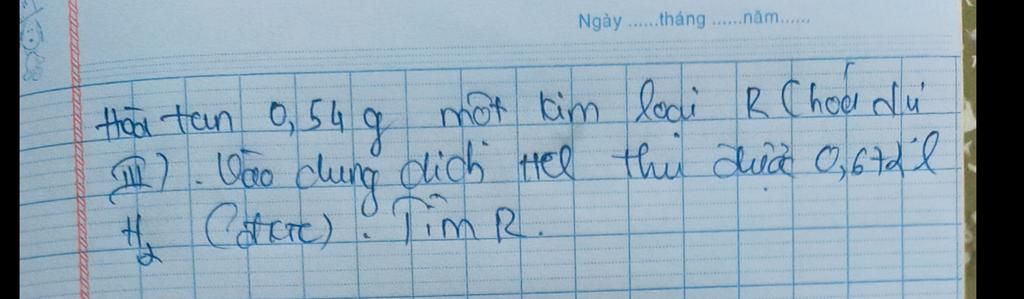 Ngày ......tháng ......năm......
Hòa tan 0,54 g một kim loại R (hoá dư
(III)). Vào dung dịch HCl thu được 0,672 l
H2 (đktc). Tìm R.